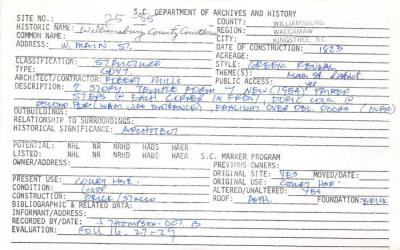 S.C. DEPARTMENT OF ARCHIVES AND HISTORY
SITE NO.: 25 85 COUNTY: WILLIAMSBURG
HISTORIC NAME: Williamsburg County Courthouse REGION: WACCAMAW
COMMON NAME: CITY: KINGSTREE, S.C.
ADDRESS: W. MAIN ST. DATE OF CONSTRUCTION: 1823
ACREAGE:
CLASSIFICATION: STRUCTURE STYLE: GREEK REVIVAL
TYPE: GOVT. THEME(S):
ARCHITECT/CONTRACTOR: ROBERT MILLS PUBLIC ACCESS: YES
DESCRIPTION: 2 STORY TEMPLE FORM NEW (1954) PAIRED
STEPS @ EACH CORNER IN FRONT, DORIC COLS. @
SECOND FLOOR (MAIN ENTRANCE), FANLIGHT OVER DBL. DOORS (OVER)
OUTBUILDINGS:
RELATIONSHIP TO SURROUNDINGS:
HISTORICAL SIGNIFICANCE: ARCHITECT
POTENTIAL: NHL NR NRHD HABS HAER
LISTED: NHL NR NRHD HABS HAER S.C. MARKER PROGRAM
OWNER/ADDRESS: PREVIOUS OWNERS:
ORIGINAL SITE: YES MOVED/DATE:
PRESENT USE: COURT HSE. ORIGINAL USE: COURT HSE.
CONDITION: GOOD ALTERED/UNALTERED: YES
CONSTRUCTION: BRICK/STUCCO ROOF: ASPH. FOUNDATION: BRICK
BIBLIOGRAPHIC & RELATED DATA:
INFORMANT/ADDRESS:
RECORDED BY/DATE: J THOMPSON - OCT.
EVALUATION: ROLL 16, 27-29